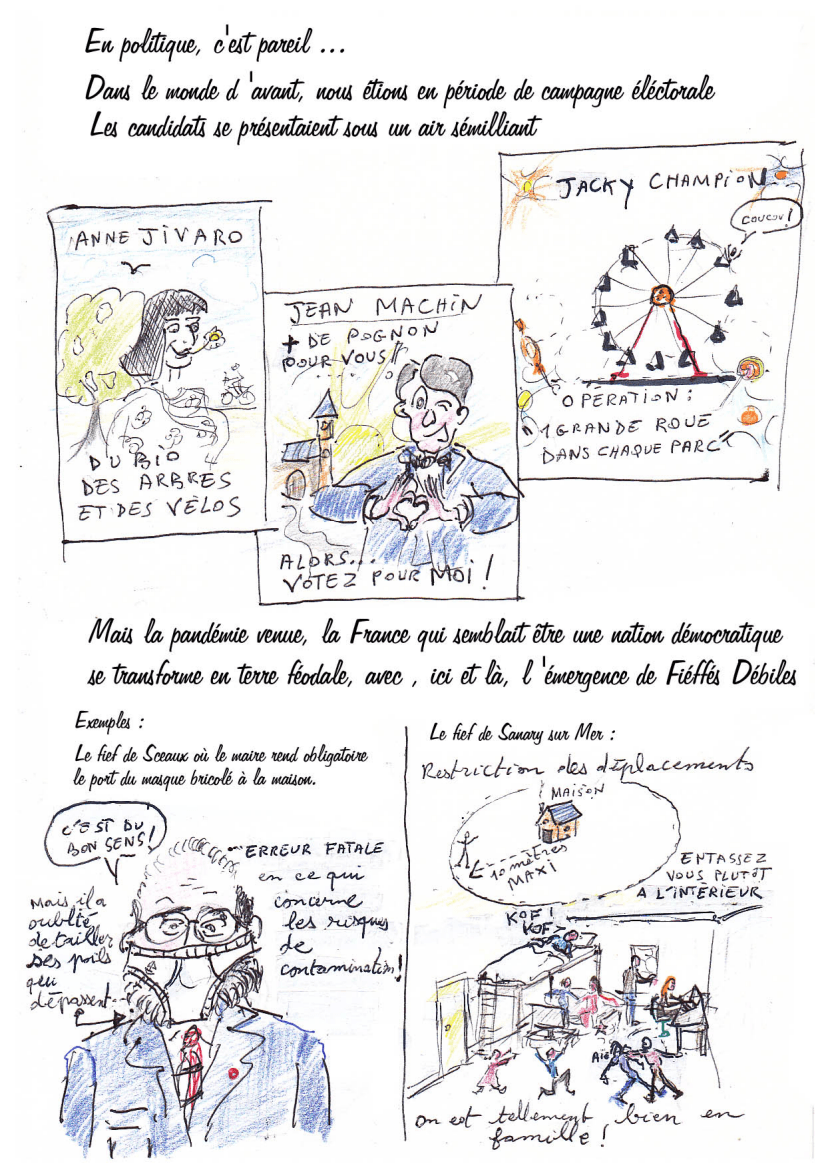 En politique, c'est pareil ...
Dans le monde d 'avant, nous étions en période de campagne éléctorale
Les candidats se présentaient sous un air sémilliant
ANNE JIVARO
DU BIO
DES ARBRES
ET DES VÉLOS
JEAN MACHIN
+ DE POGNON
POUR VOUS !
ALORS...
VOTEZ POUR MOI !
JACKY CHAMPION
COUCOU !
OPERATION :
"1 GRANDE ROUE
DANS CHAQUE PARC"
Mais la pandémie venue, la France qui semblait être une nation démocratique
se transforme en terre féodale, avec , ici et là, l 'émergence de Fiéffés Débiles
Exemples :
Le fief de Sceaux où le maire rend obligatoire
le port du masque bricolé à la maison.
C'EST DU
BON SENS !
Mais il a
oublié
de tailler
ses poils
qui
dépassent
ERREUR FATALE
en ce qui
concerne
les risques
de
contamination !
Le fief de Sanary sur Mer :
Restriction des déplacements
MAISON
10 mètres
MAXI
ENTASSEZ
VOUS PLUTÔT
A L'INTÉRIEUR
KOF !
KOF
AïE
On est tellement bien en
famille !